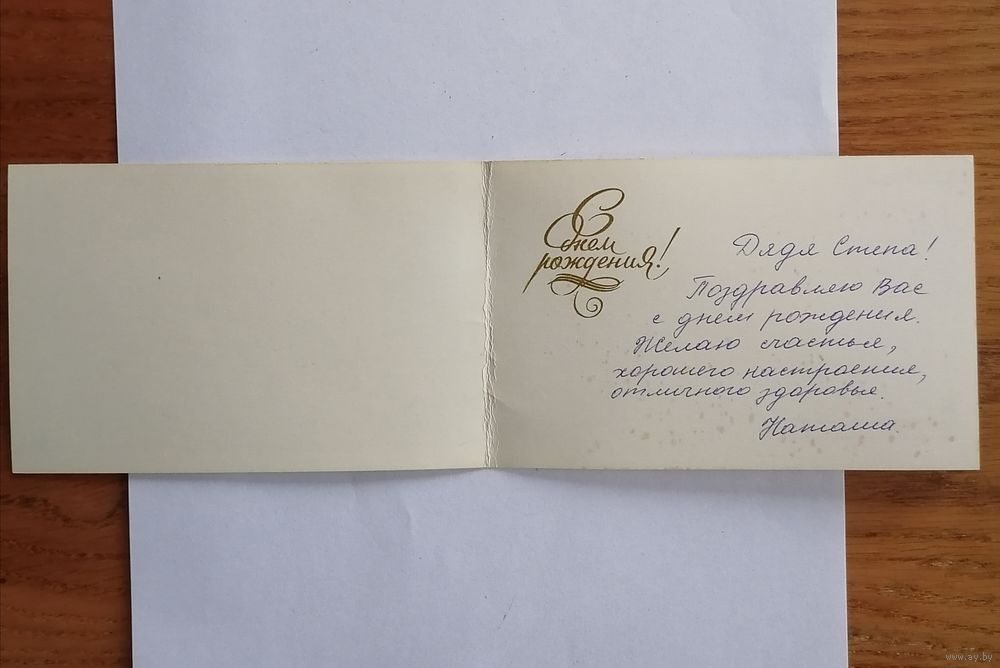 С
днем
рождения!
Дядя Степа!
Поздравляю Вас
с днем рождения.
Желаю счастья,
хорошего настроения,
отличного здоровья.
Наташа.
www.ay.by